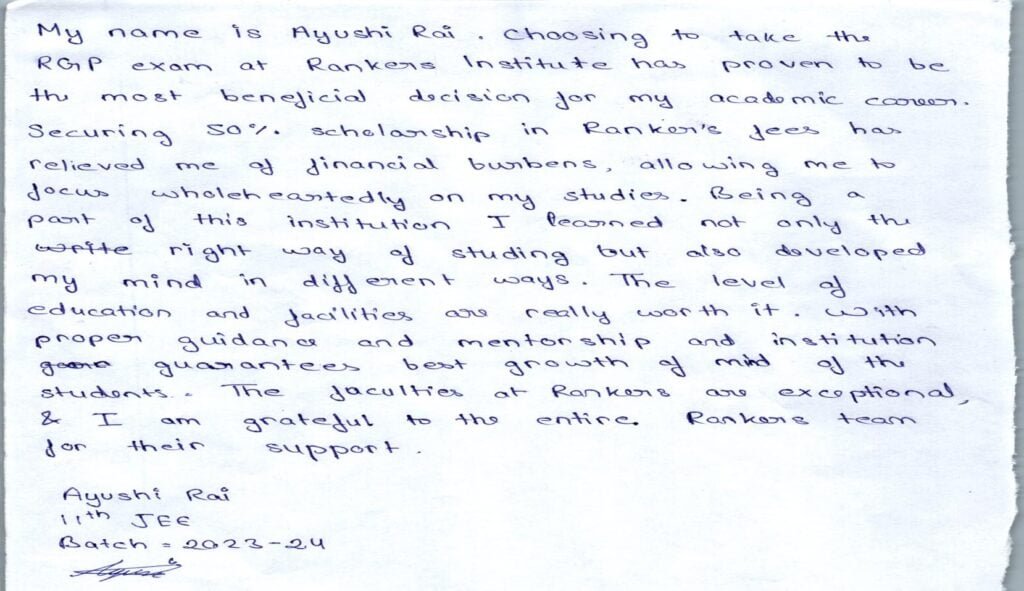 My name is Ayushi Rai. Choosing to take the
RGP exam at Rankers Institute has proven to be
the most beneficial decision for my academic career.
Securing 50% scholarship in Ranker's fees has
relieved me of financial burbens, allowing me to
focus wholeheartedly on my studies. Being a
part of this institution I learned not only the
write right way of studing but also developed
my mind in different ways. The level of
education and facilities are really worth it. With
proper guidance and mentorship and institution
guarantees best growth of mind of the
students. The faculties at Rankers are exceptional,
& I am grateful to the entire Rankers team
for their support.
Ayushi Rai
11th JEE
Batch = 2023-24